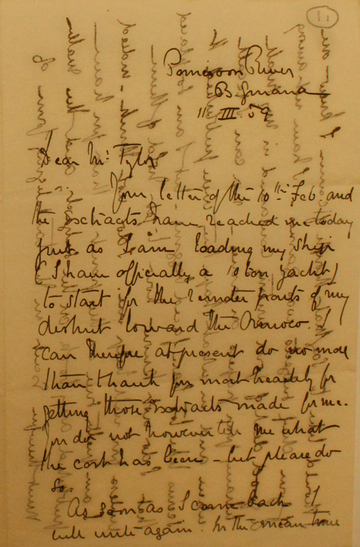 11
Pomeroon River
B. Guiana
11 III 59
Dear Mr. Tylor
Your letter of the 10th Feb and
the extracts have reached me today
just as I am loading my ship
(I have officially a 10 ton yacht)
to start for the remoter parts of my
district toward the Orinoco. I
can therefore at present do no more
than thank you most heartily for
getting those extracts made for me.
You do not however tell me what
the cost has been - but please do
so.
As soon as I come back I
will write again. In the mean time